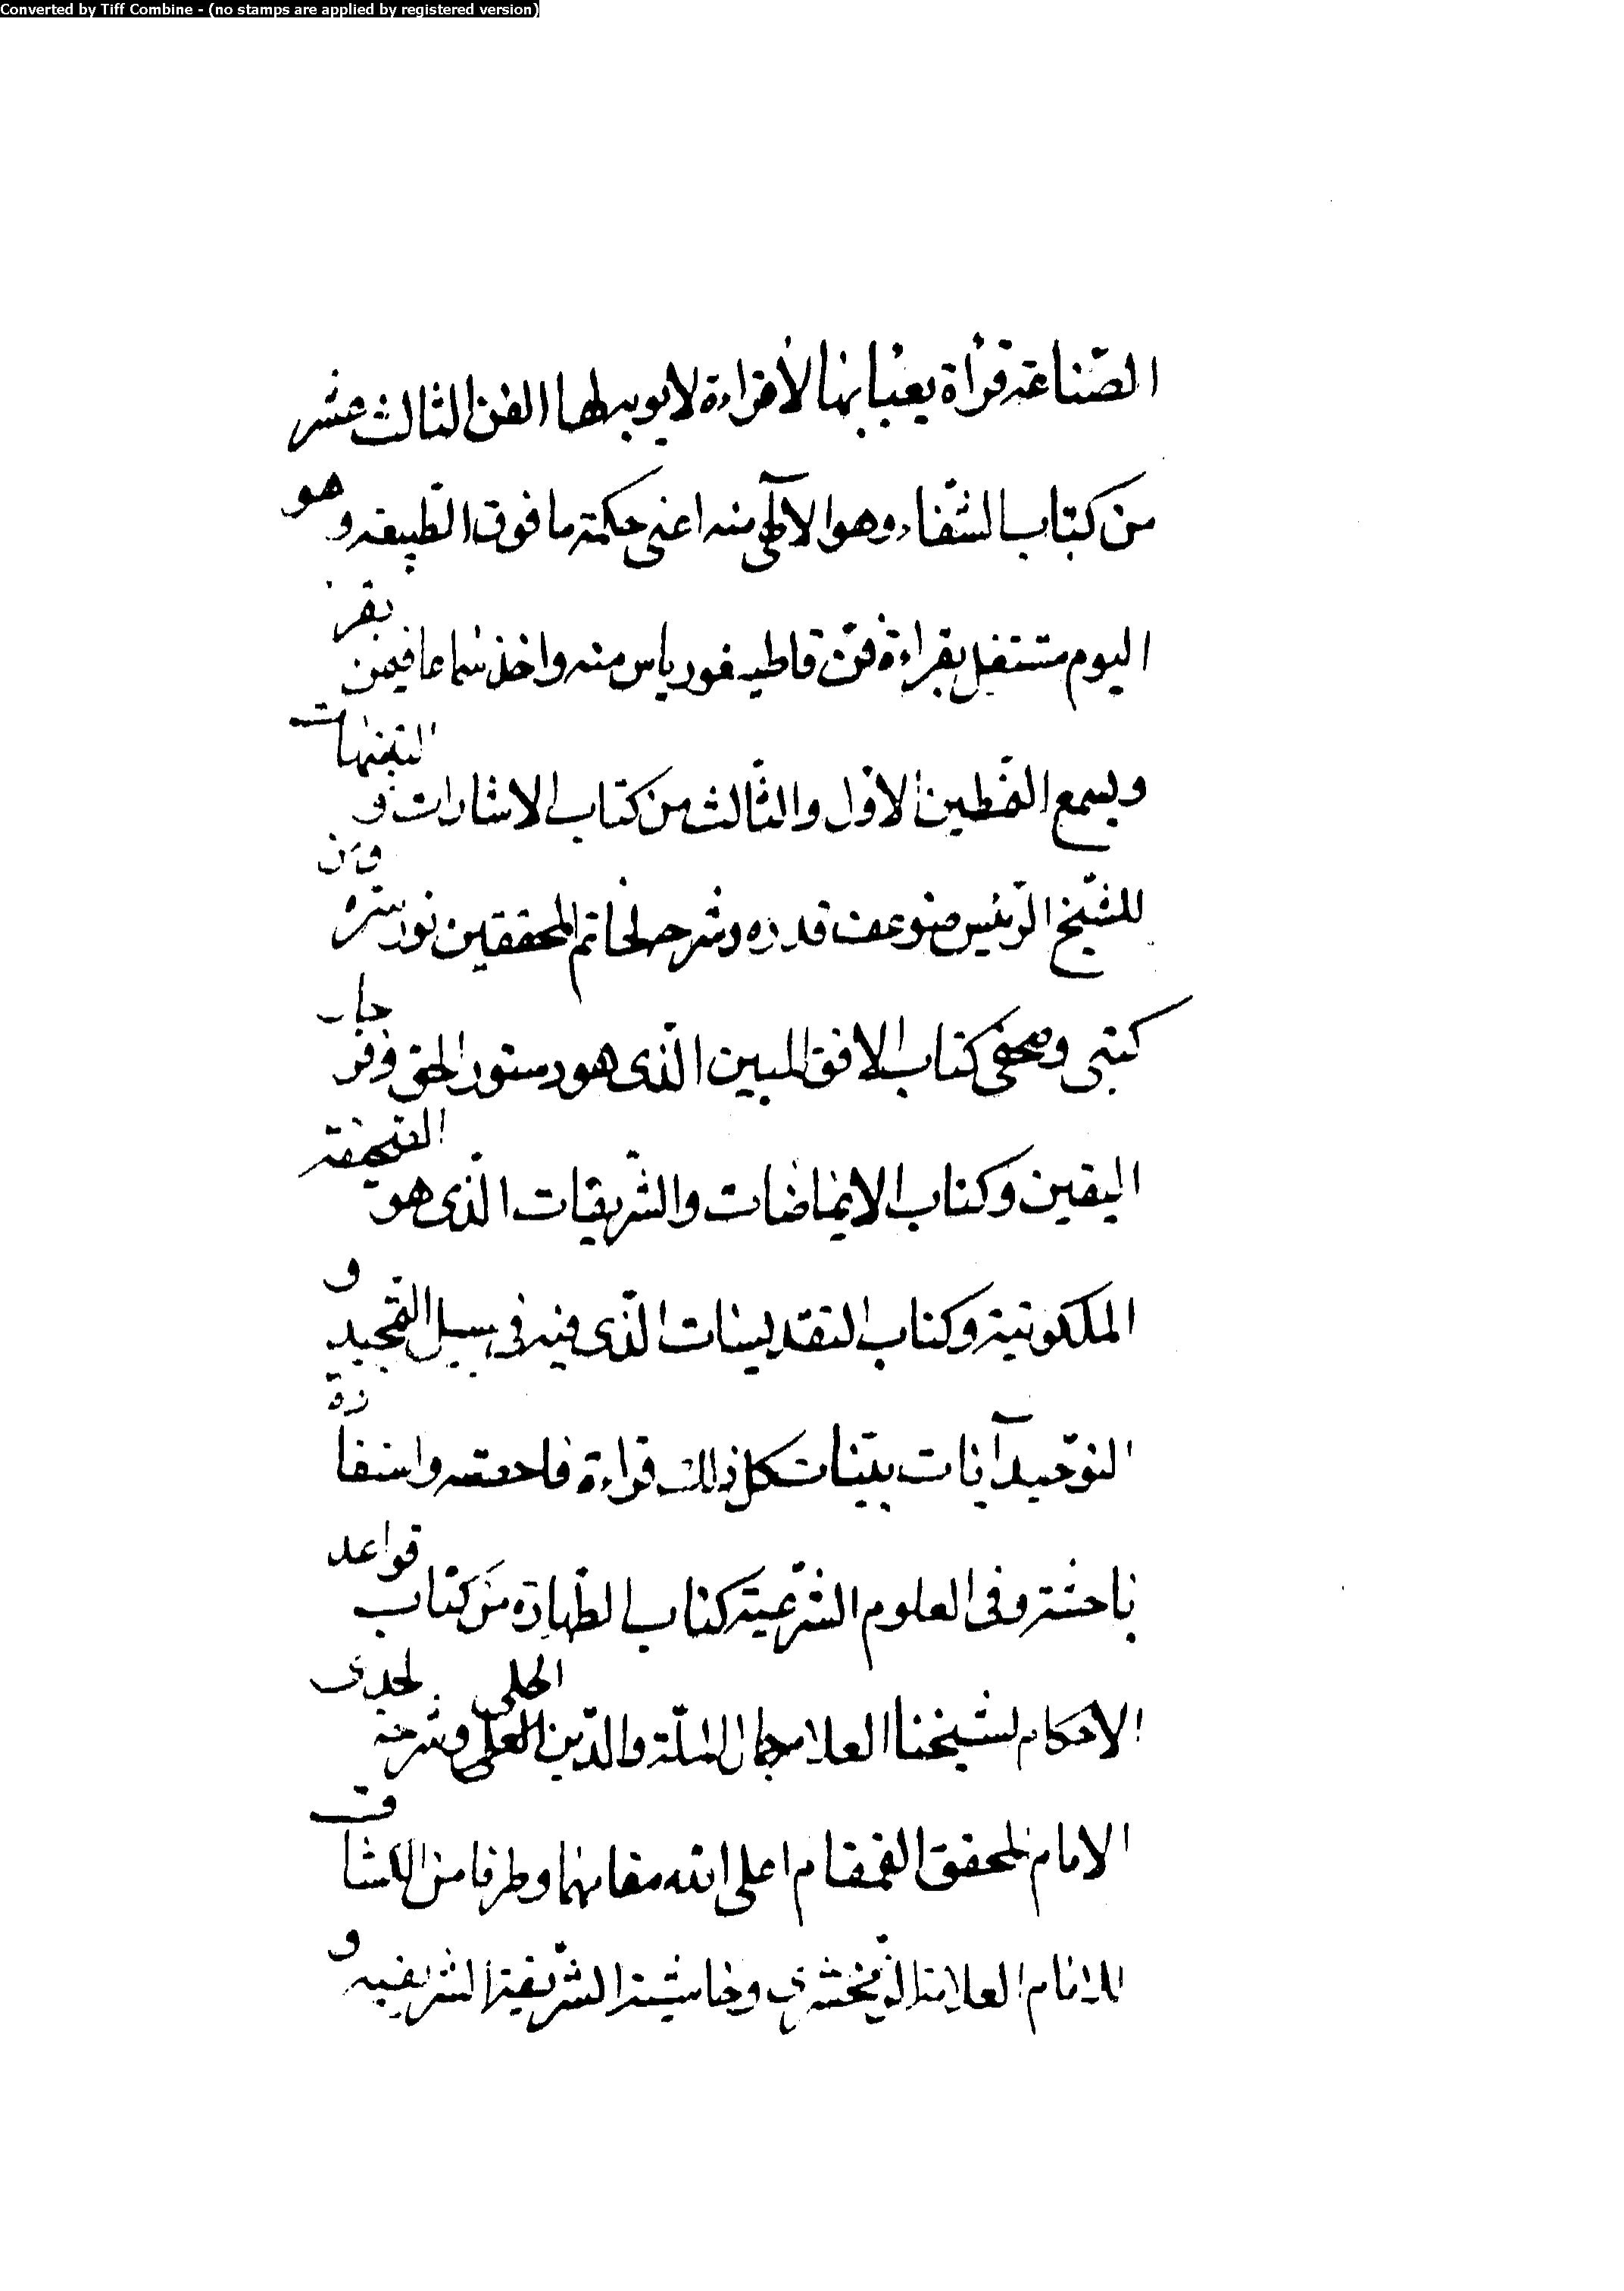 Converted by Tiff Combine - (no stamps are applied by registered version)
الصّناعة قرأة يعبأ بها لا قراءة لا يوبه لها الفن الثالث عشر
من كتاب الشفاء وهو الالهى منه اعنى حكمة ما فوق الطبيعه وهو
اليوم مشتغل بقراءة فنّ قاطيغورياس منه واخذ سماعا فيمن يقرء
ويسمع النمطين الاوّل والثالث من كتاب الاشارات والتنبيهات
للشيخ الرّئيس ضوعف قدره وشرحه لخاتم المحققين نور سرّه ومن
كتبى وصحفى كتاب الافق المبين الذى هو دستور الحق وفرجار
اليقين وكتاب الايماضات والتشريقات الذى هو الصحيفة
الملكوتية وكتاب التقديسات الذى فيه فى سبيل التمجيد و
التوحيد آيات بيّنات كل ذلك قراءة فاحصة واستفادة
باحثة وفى العلوم الشرعية كتاب الطهارة من كتاب قواعد
الاحكام لشيخنا العلامة جمال الملّة والدّين الحلى وشرحه لجدى
الامام المحقق القمقام اعلى الله مقامهما وطرفا من الكشاف
للامام العلامة الزمخشرى وحاشيته الشريفة الشريفيه و